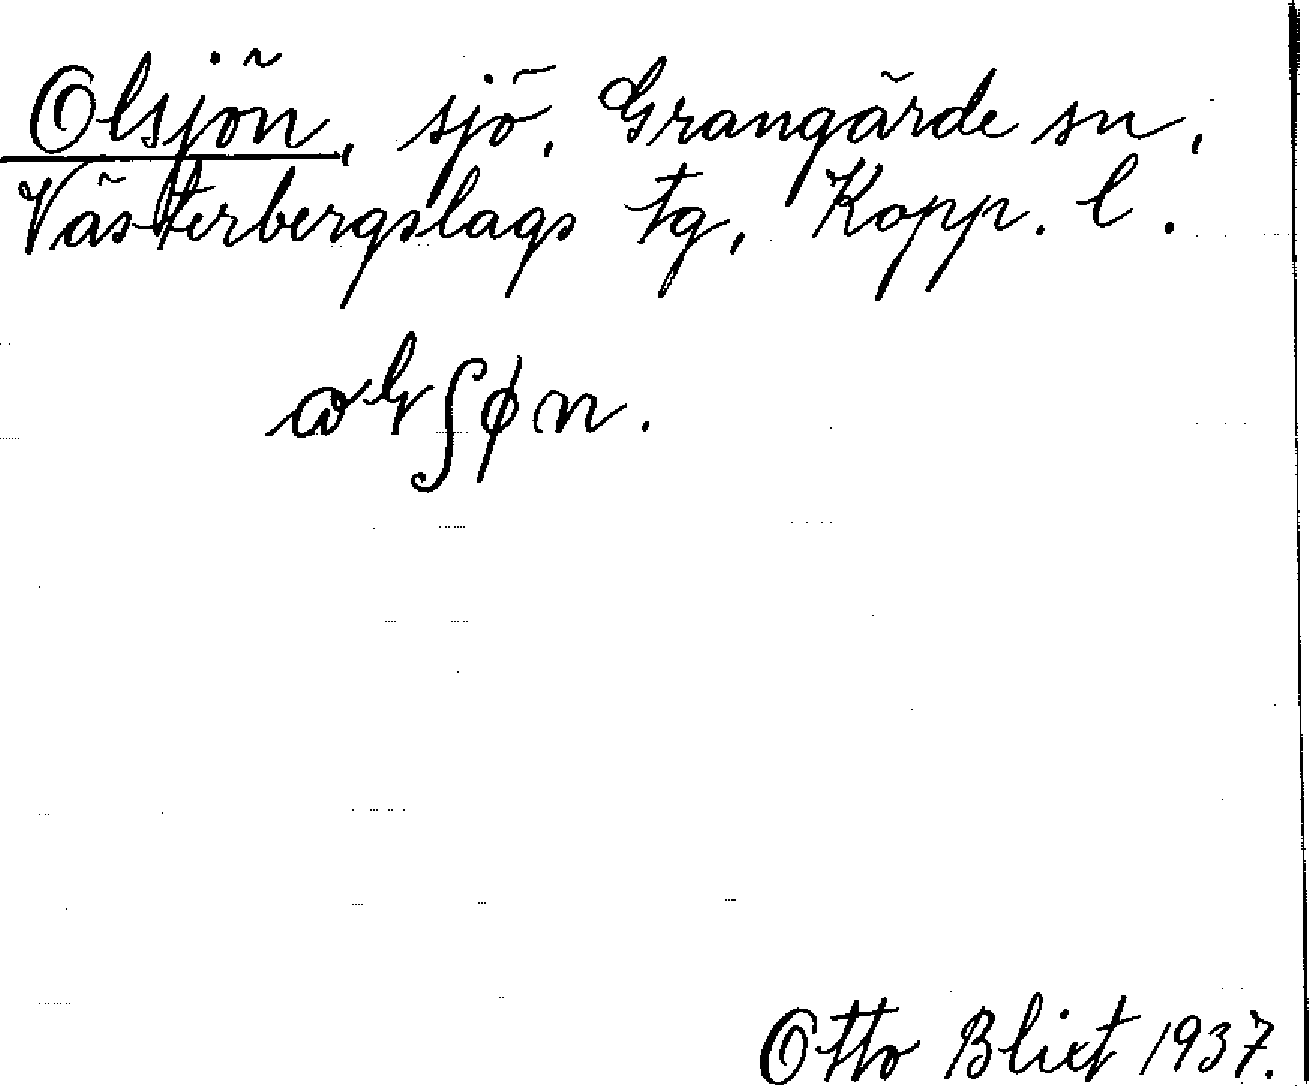 Olsjön, sjö, Grangärde sn,
Västerbergslags tg, Kopp. l.
Otto Blixt 1937.